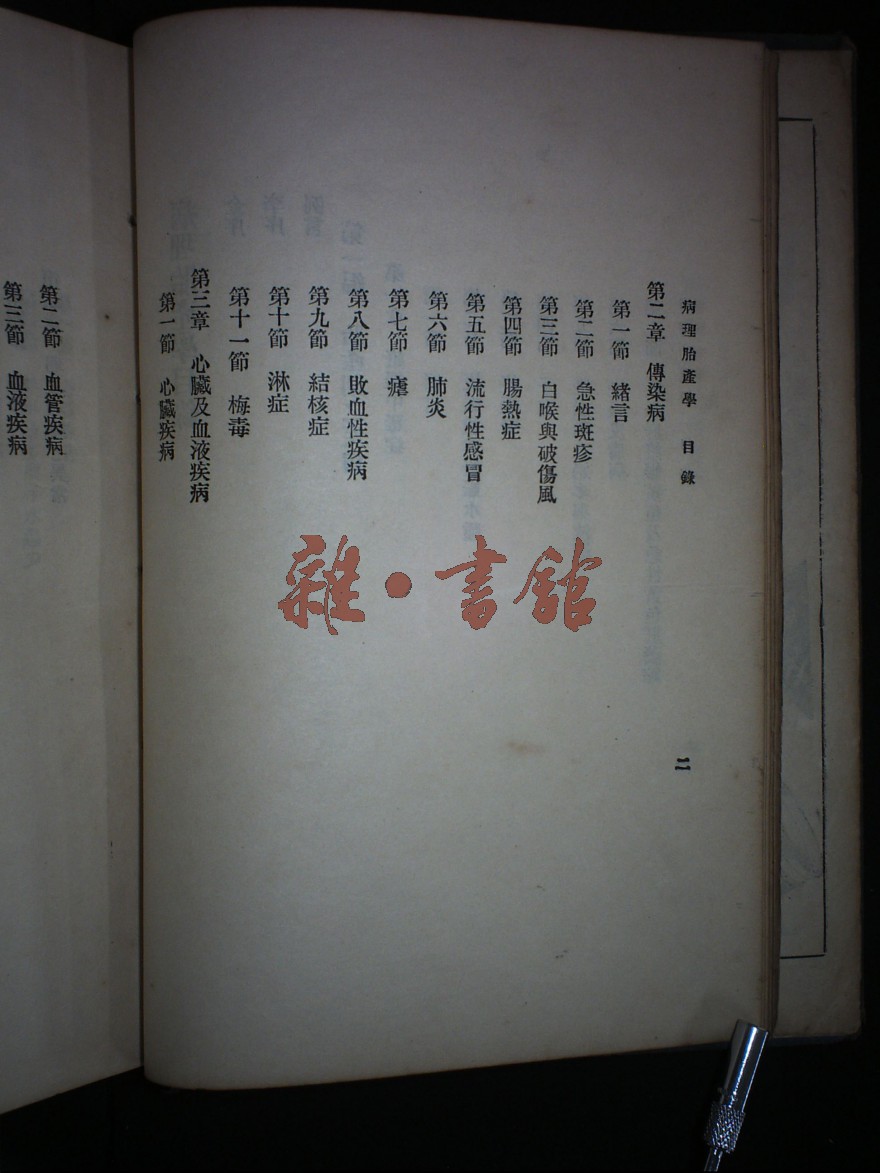 病理胎產學 目錄
二
第二章 傳染病
第一節 緒言
第二節 急性斑疹
第三節 白喉與破傷風
第四節 腸熱症
第五節 流行性感冒
第六節 肺炎
第七節 瘧
第八節 敗血性疾病
第九節 結核症
第十節 淋症
第十一節 梅毒
第三章 心臟及血液疾病
第一節 心臟疾病
第二節 血管疾病
第三節 血液疾病
雜·書館